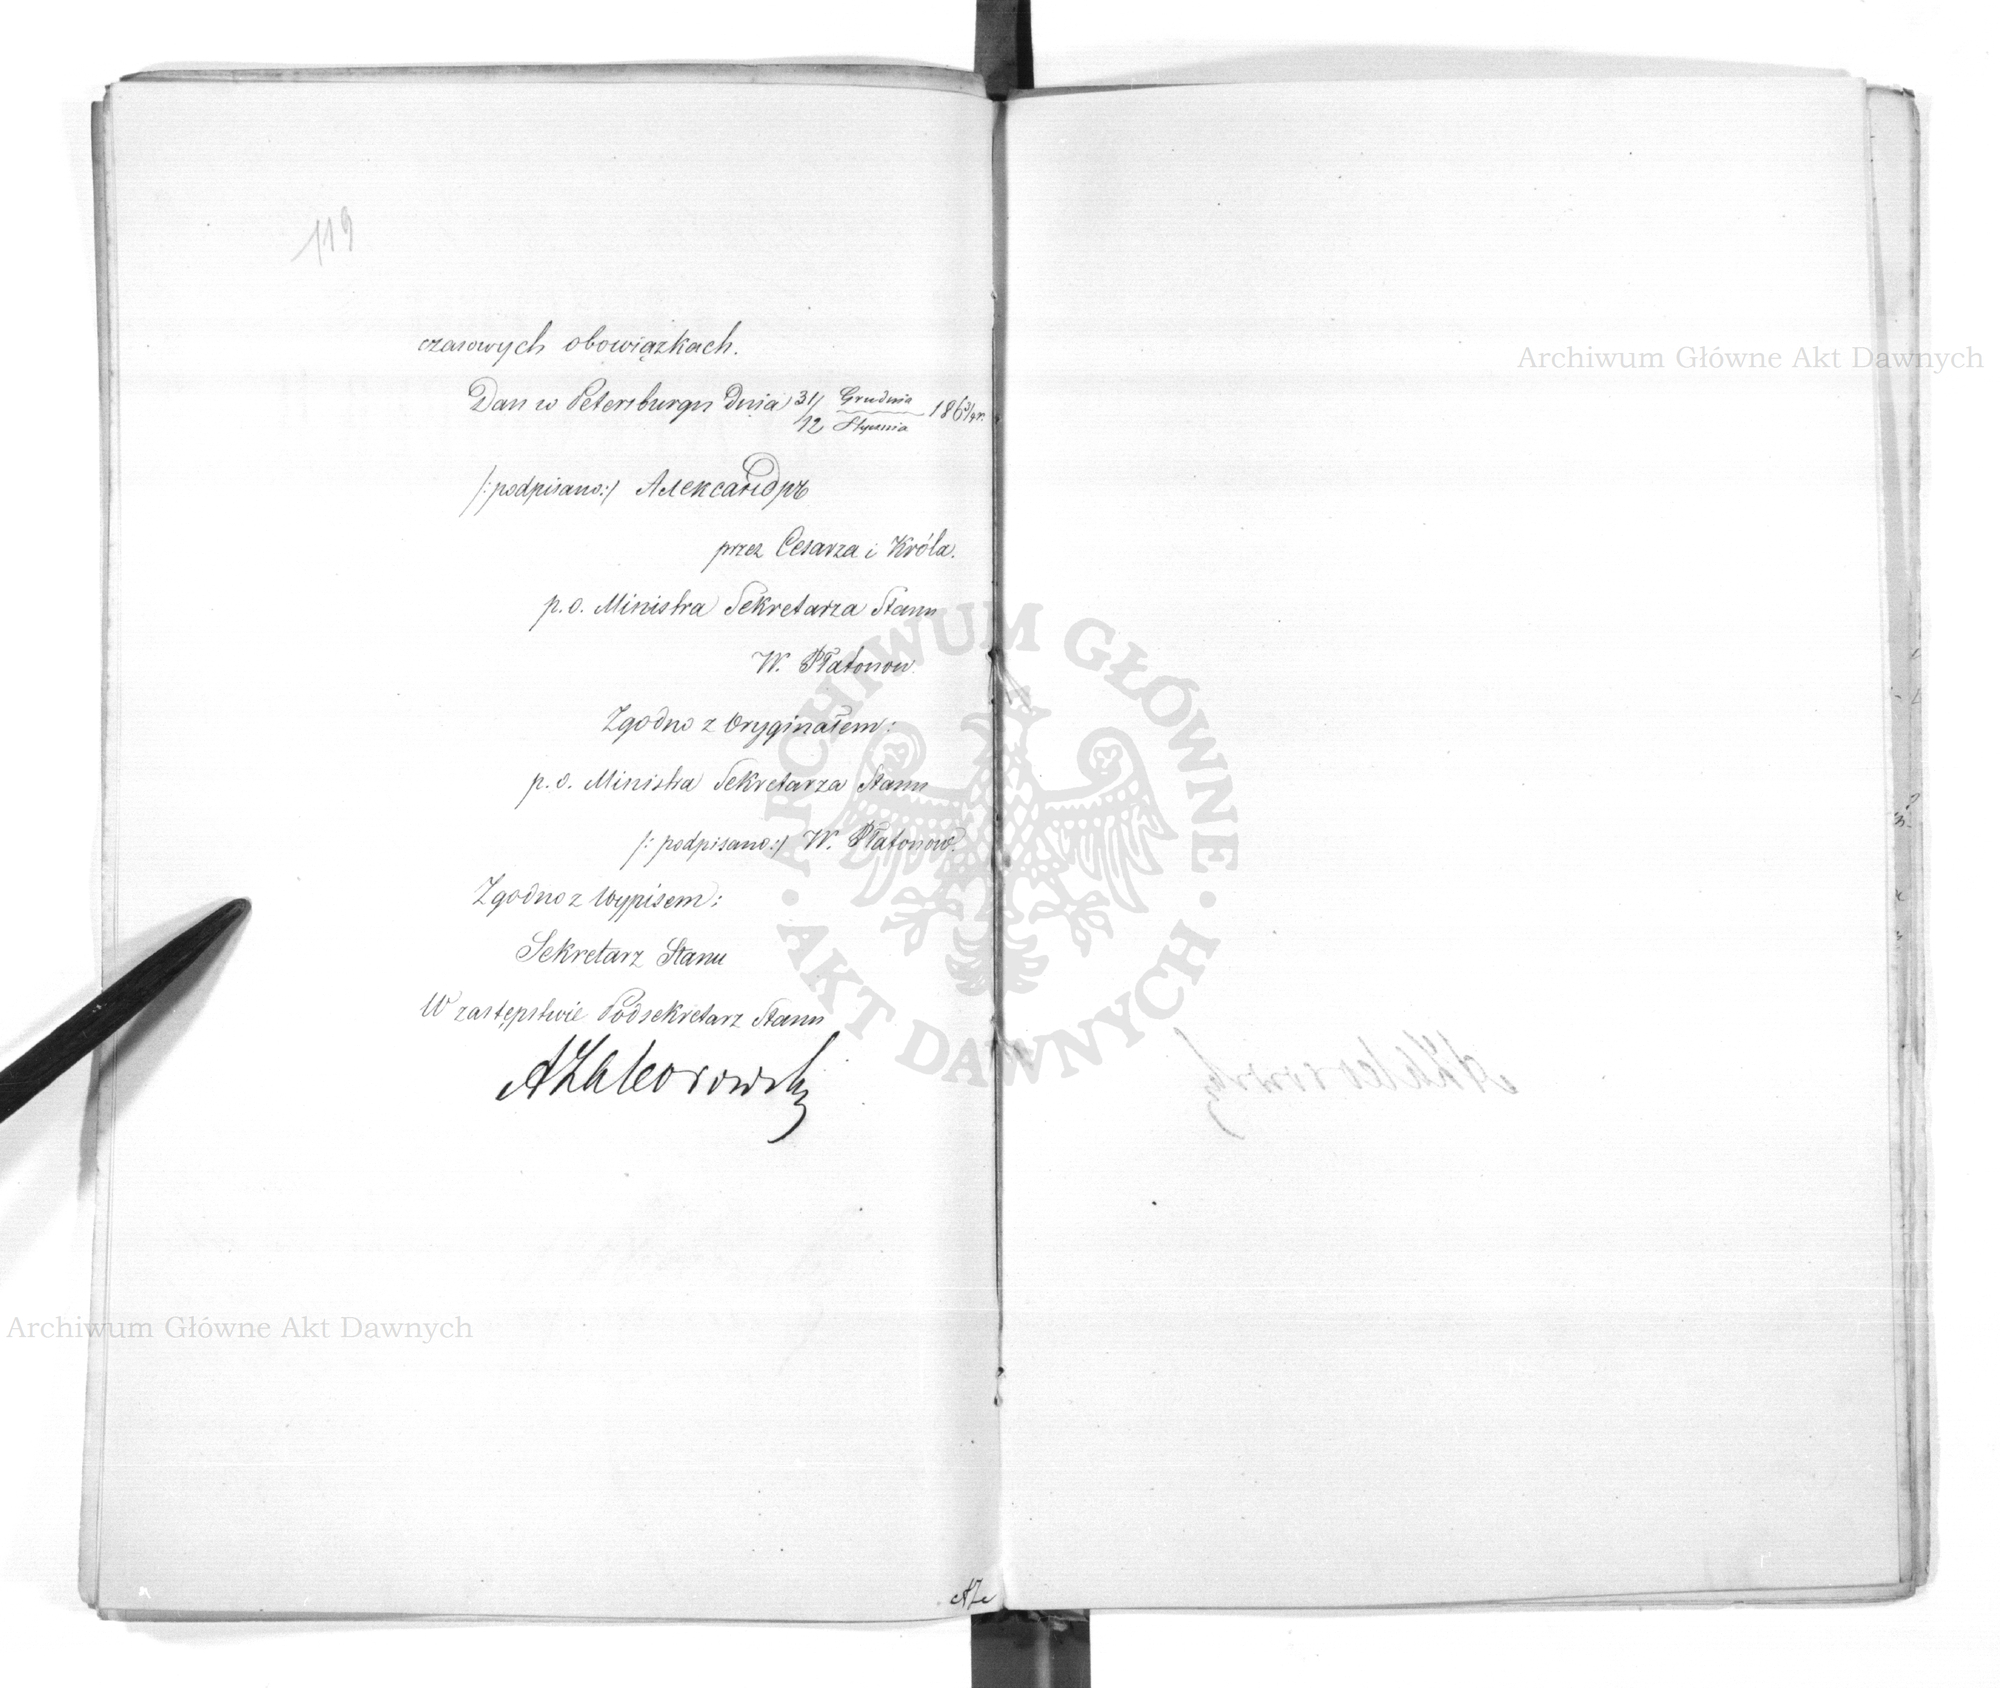 119
czasowych obowiązkach.
Dan w Petersburgu Dnia 31/12 Grudnia/Stycznia 1863/4 r.
/:podpisano:/ Александръ
przez Cesarza i Króla.
p. o. Ministra Sekretarza Stanu
W. Płatonow.
Zgodno z Oryginałem:
p. o. Ministra Sekretarza Stanu
/: podpisano:/ W. Płatonow.
Zgodno z Wypisem:
Sekretarz Stanu
W zastępstwie Podsekretarz Stanu
Archiwum Główne Akt Dawnych
Archiwum Główne Akt Dawnych
ARCHIWUM GŁÓWNE
AKT DAWNYCH